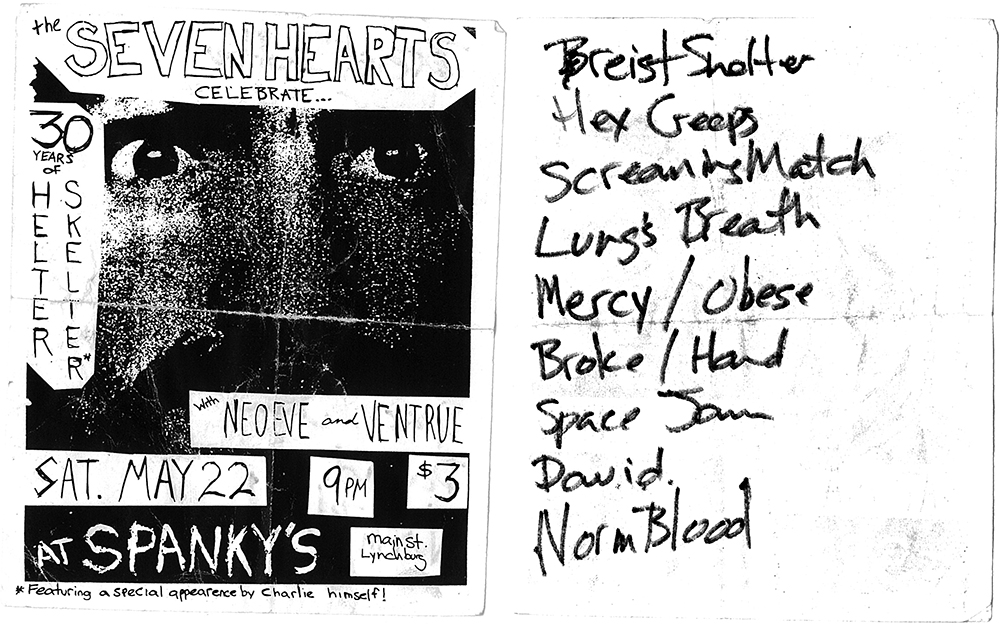 the SEVEN HEARTS
CELEBRATE...
30
YEARS
of
HELTER
SKELTER*
with NEOEVE and VENTRUE
SAT. MAY 22
9PM
$3
AT SPANKY'S
main st.
Lynchburg
* Featuring a special appearence by Charlie himself!
Breist Shelter
Hex Creeps
Screaming Match
Lung's Breath
Mercy / Obese
Broke / Hand
Space Jam
David.
Norm Blood